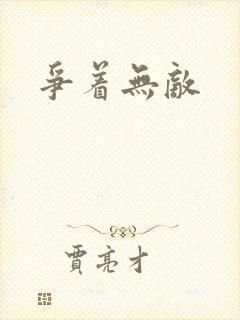 爭着無敵
賈亮才